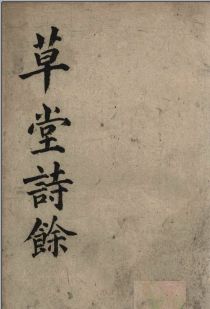 草堂詩餘